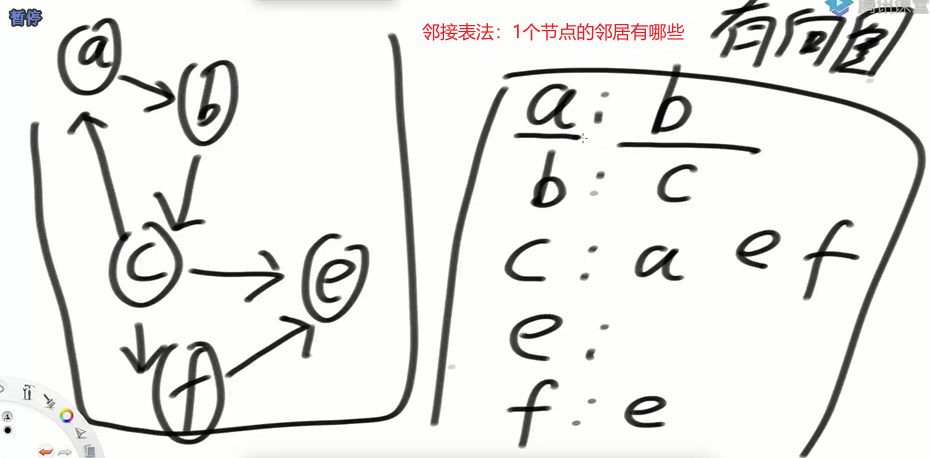 暂停
邻接表法：1个节点的邻居有哪些
腾讯课堂
有向图
a
b
c
e
f
a: b
b: c
c: a e f
e:
f: e